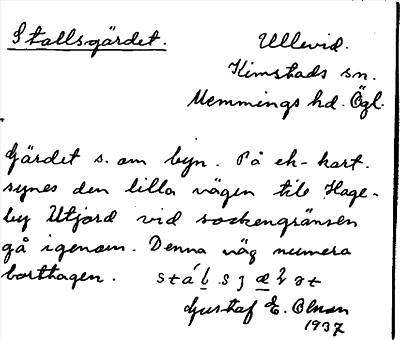 Stallsgärdet.
Ullevid.
Kimstads sn.
Memmings hd. Ögl.
Gärdet s. om byn. På ek-kart.
synes den lilla vägen till Hage-
by Utjord vid sockengränsen
gå igenom. Denna väg numera
borttagen.
Gustaf E. Olsson
1937